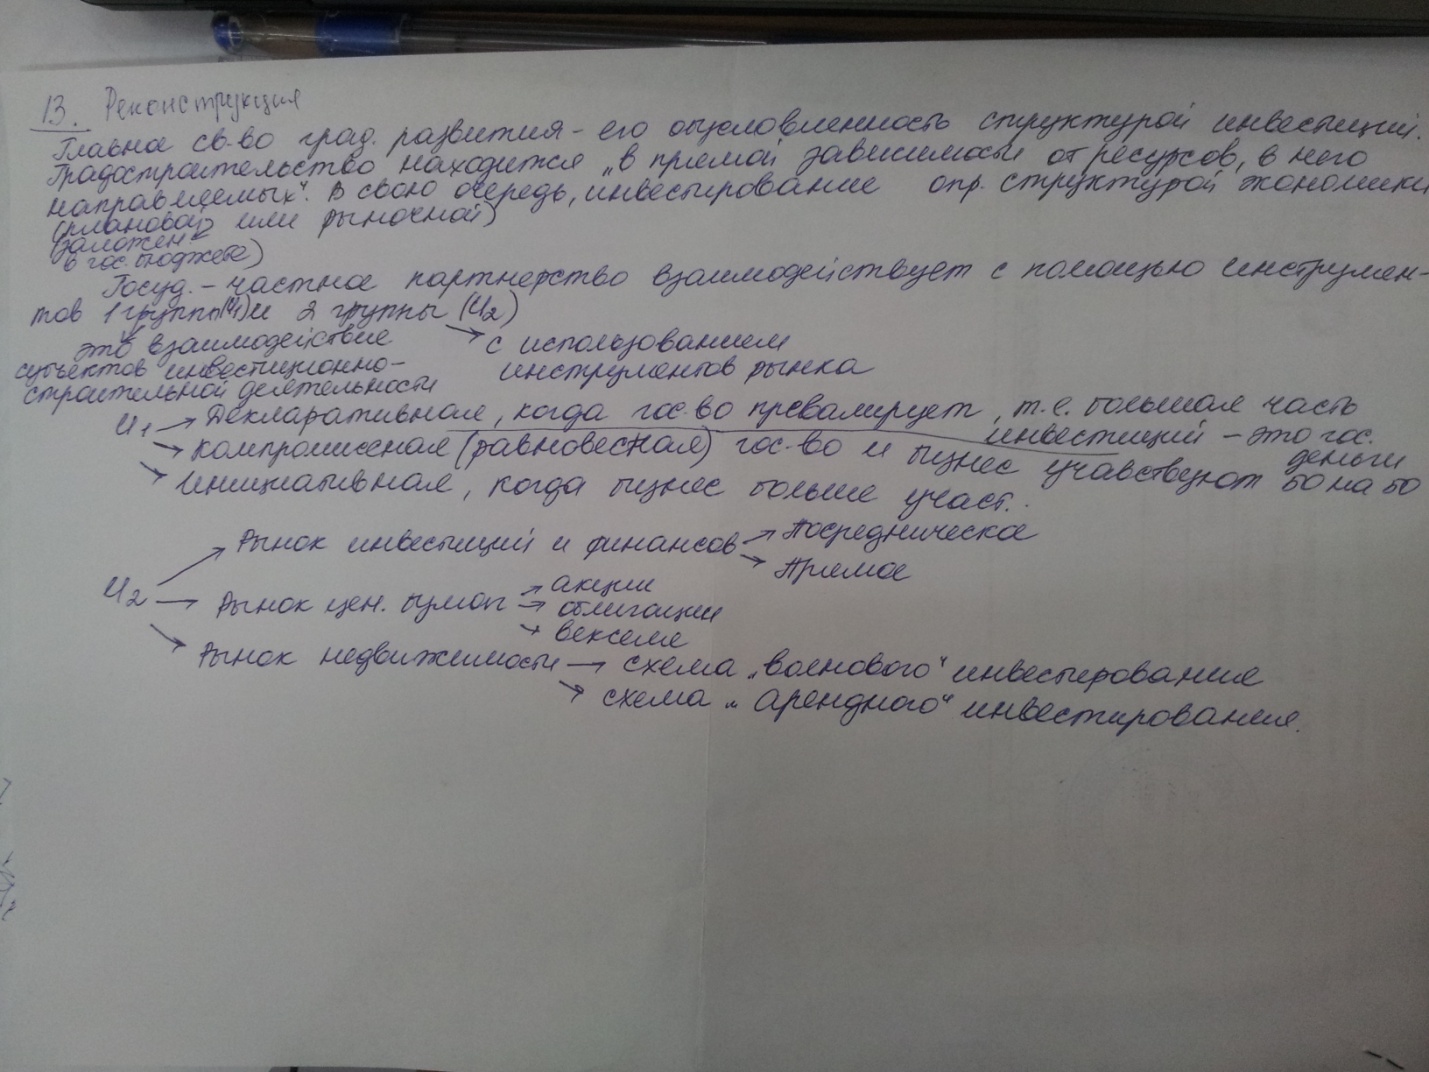 13. Реконструкция
Главное св-во град. развития - его обусловленность структурой инвестиций.
Градостроительство находится „в прямой зависимости от ресурсов, в него
направляемых“. В свою очередь, инвестирование опр. структурой экономики
(плановой или рыночной)
(заложен.
в гос. бюджете)
Госуд. - частное партнерство взаимодействует с помощью инструмен-
тов 1 группы (И1) и 2 группы (И2)
это взаимодействие
субъектов инвестиционно-
строительной деятельности
с использованием
инструментов рынка
И1 → Декларативная, когда гос-во превалирует, т.е. большая часть
инвестиций - это гос.
деньги
→ Компромиссная (равновесная) гос-во и бизнес учавствуют 50 на 50
→ Инициативная, когда бизнес больше участ.
И2 → Рынок инвестиций и финансов → Посредническое
→ Прямое
→ Рынок цен. бумаг → акции
→ облигации
→ векселя
→ Рынок недвижимости → схема „волнового“ инвестирования
→ схема „арендного“ инвестирования.